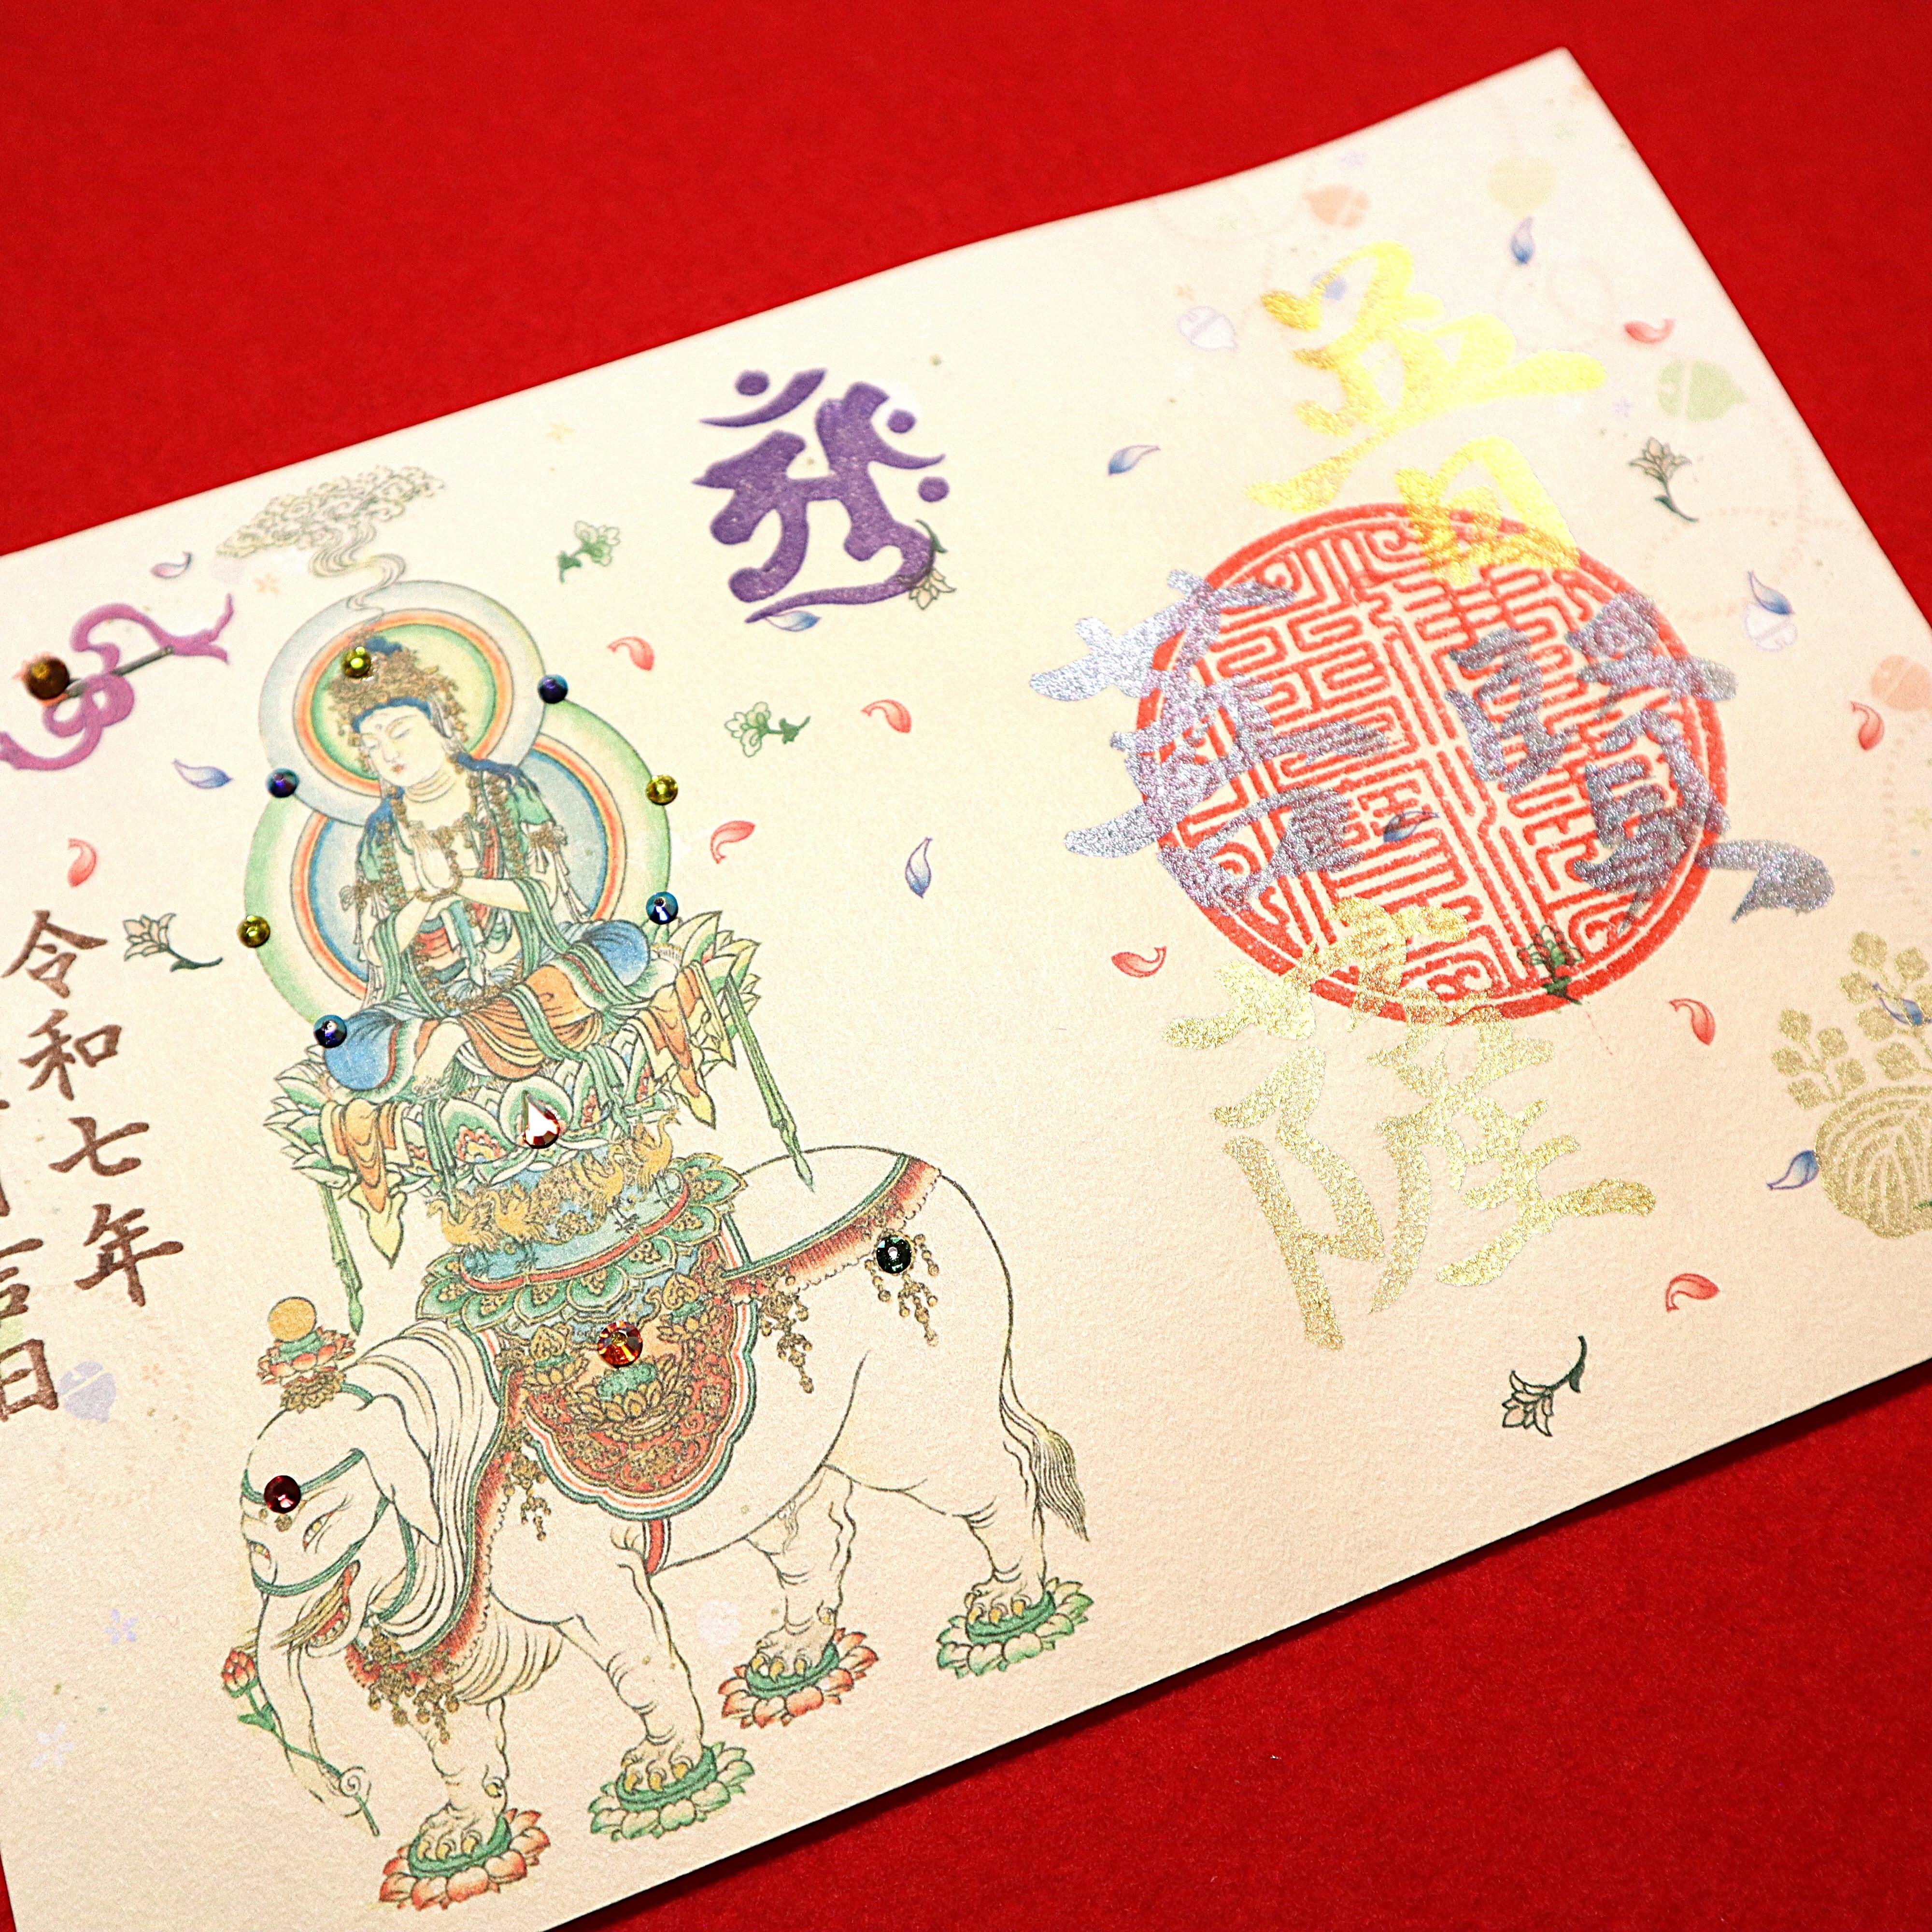 普賢菩薩
令和七年
吉日